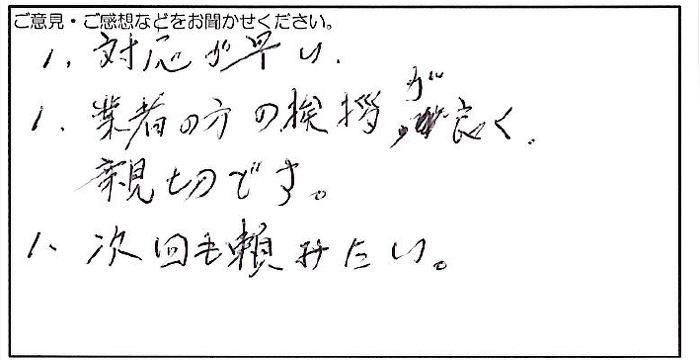 ご意見・ご感想などをお聞かせください。
1. 対応が早い.
1. 業者の方の挨拶が良く.
親切です。
1. 次回も頼みたい。